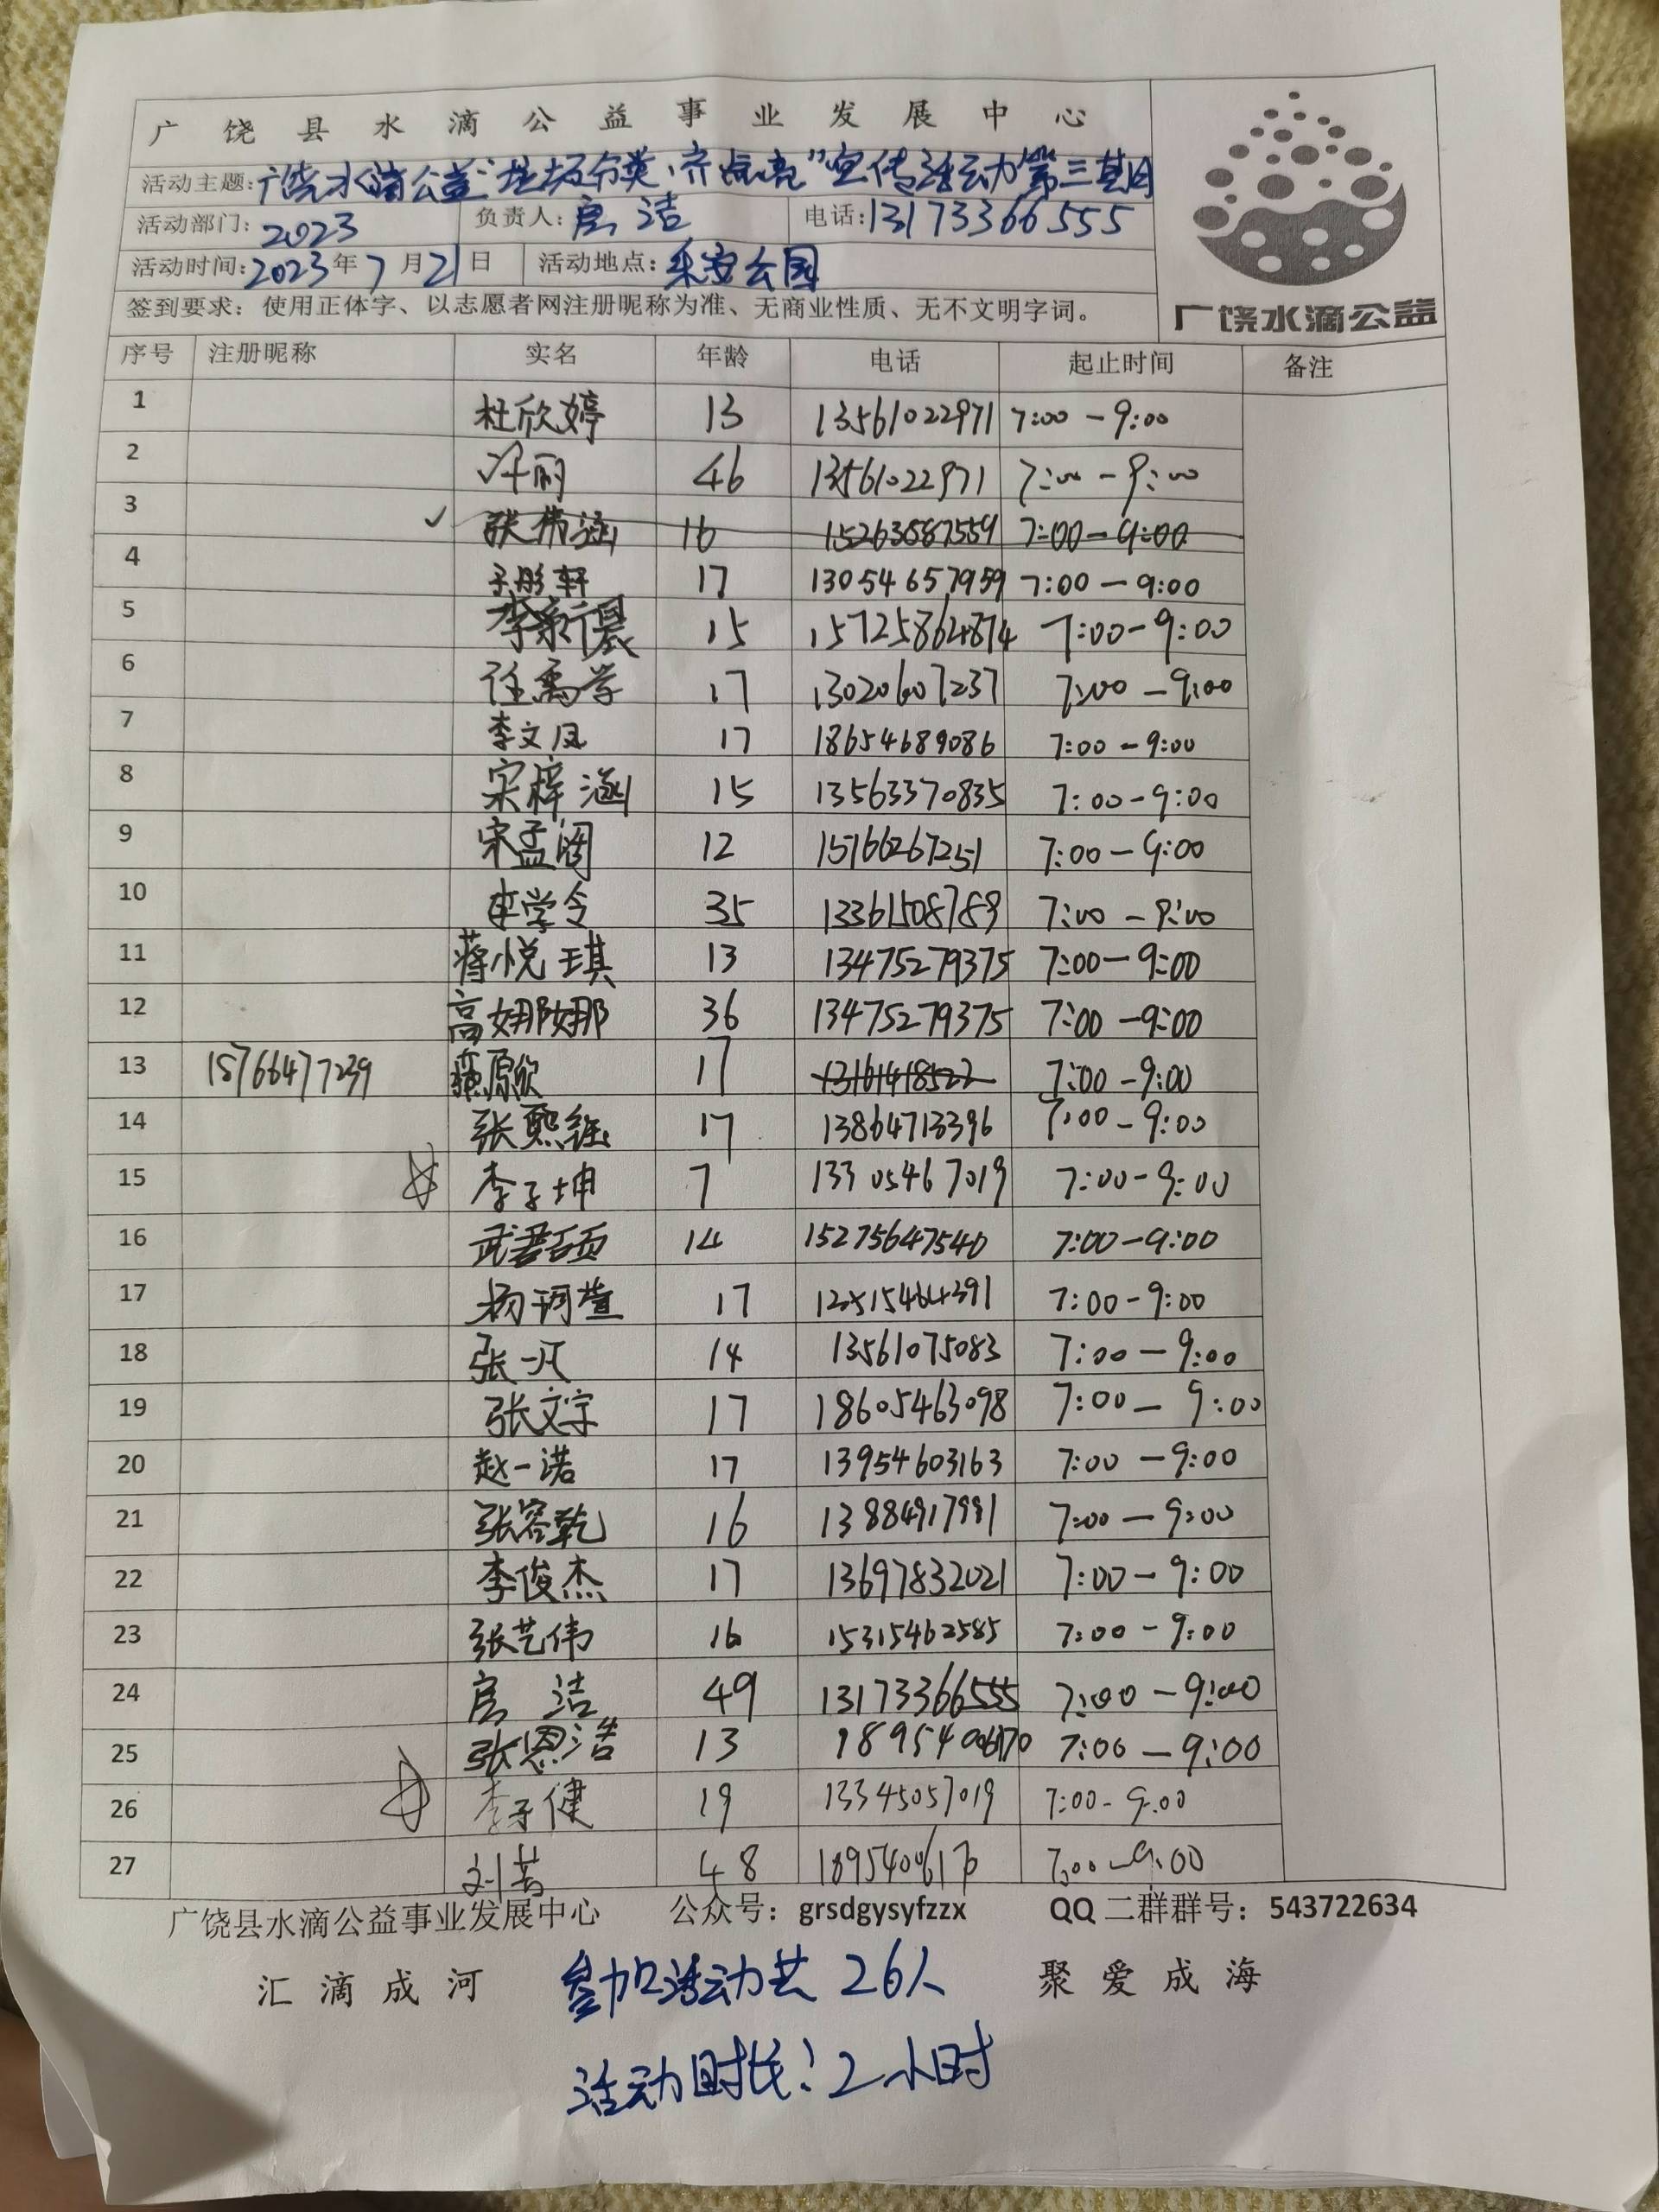 广饶县水滴公益事业发展中心
活动主题:广饶水滴公益“垃圾分类,齐点亮”宣传活动第三期
活动部门:2023 负责人:房洁 电话:13173366555
活动时间:2023年7月21日 活动地点:乐安公园
签到要求:使用正体字、以志愿者网注册昵称为准、无商业性质、无不文明字词。
广饶水滴公益
序号 注册昵称 实名 年龄 电话 起止时间 备注
1 杜欣婷 13 13561022971 7:00-9:00
2 许丽 46 13561022971 7:00-9:00
3 张伟涵 16 15263887559 7:00-9:00
4 彤轩 17 13054657959 7:00-9:00
5 李新晨 15 15725862874 7:00-9:00
6 任禹学 17 13020607237 7:00-9:00
7 李文凤 17 18654689086 7:00-9:00
8 宋梓涵 15 13563370835 7:00-9:00
9 宋孟阁 12 15766267251 7:00-9:00
10 李学令 35 13361508789 7:00-9:00
11 蒋悦琪 13 13475279375 7:00-9:00
12 高娜娜 36 13475279375 7:00-9:00
13 15766477239 燕原欣 17 13161418522 7:00-9:00
14 张熙钰 17 13864713396 7:00-9:00
15 李子坤 7 13305467019 7:00-9:00
16 武 14 15275647540 7:00-9:00
17 杨珂萱 17 7:00-9:00
18 张一凡 14 13561075083 7:00-9:00
19 张文宇 17 18605463098 7:00-9:00
20 赵一诺 17 13954603163 7:00-9:00
21 张容乾 16 13884917991 7:00-9:00
22 李俊杰 17 13697832021 7:00-9:00
23 张艺伟 16 15315462585 7:00-9:00
24 房洁 49 13173366555 7:00-9:00
25 张恩浩 13 18954006170 7:00-9:00
26 李子健 19 13345057019 7:00-9:00
27 刘芳 48 7:00-9:00
广饶县水滴公益事业发展中心 公众号:grsdgysyfzzx QQ二群群号:543722634
汇滴成河 参加活动共26人 聚爱成海
活动时长:2小时